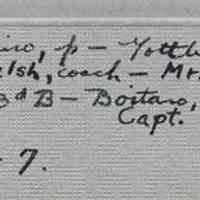 p — Yottl
lsh, coach — Mr.
3d B — Boitano,
Capt.
7.